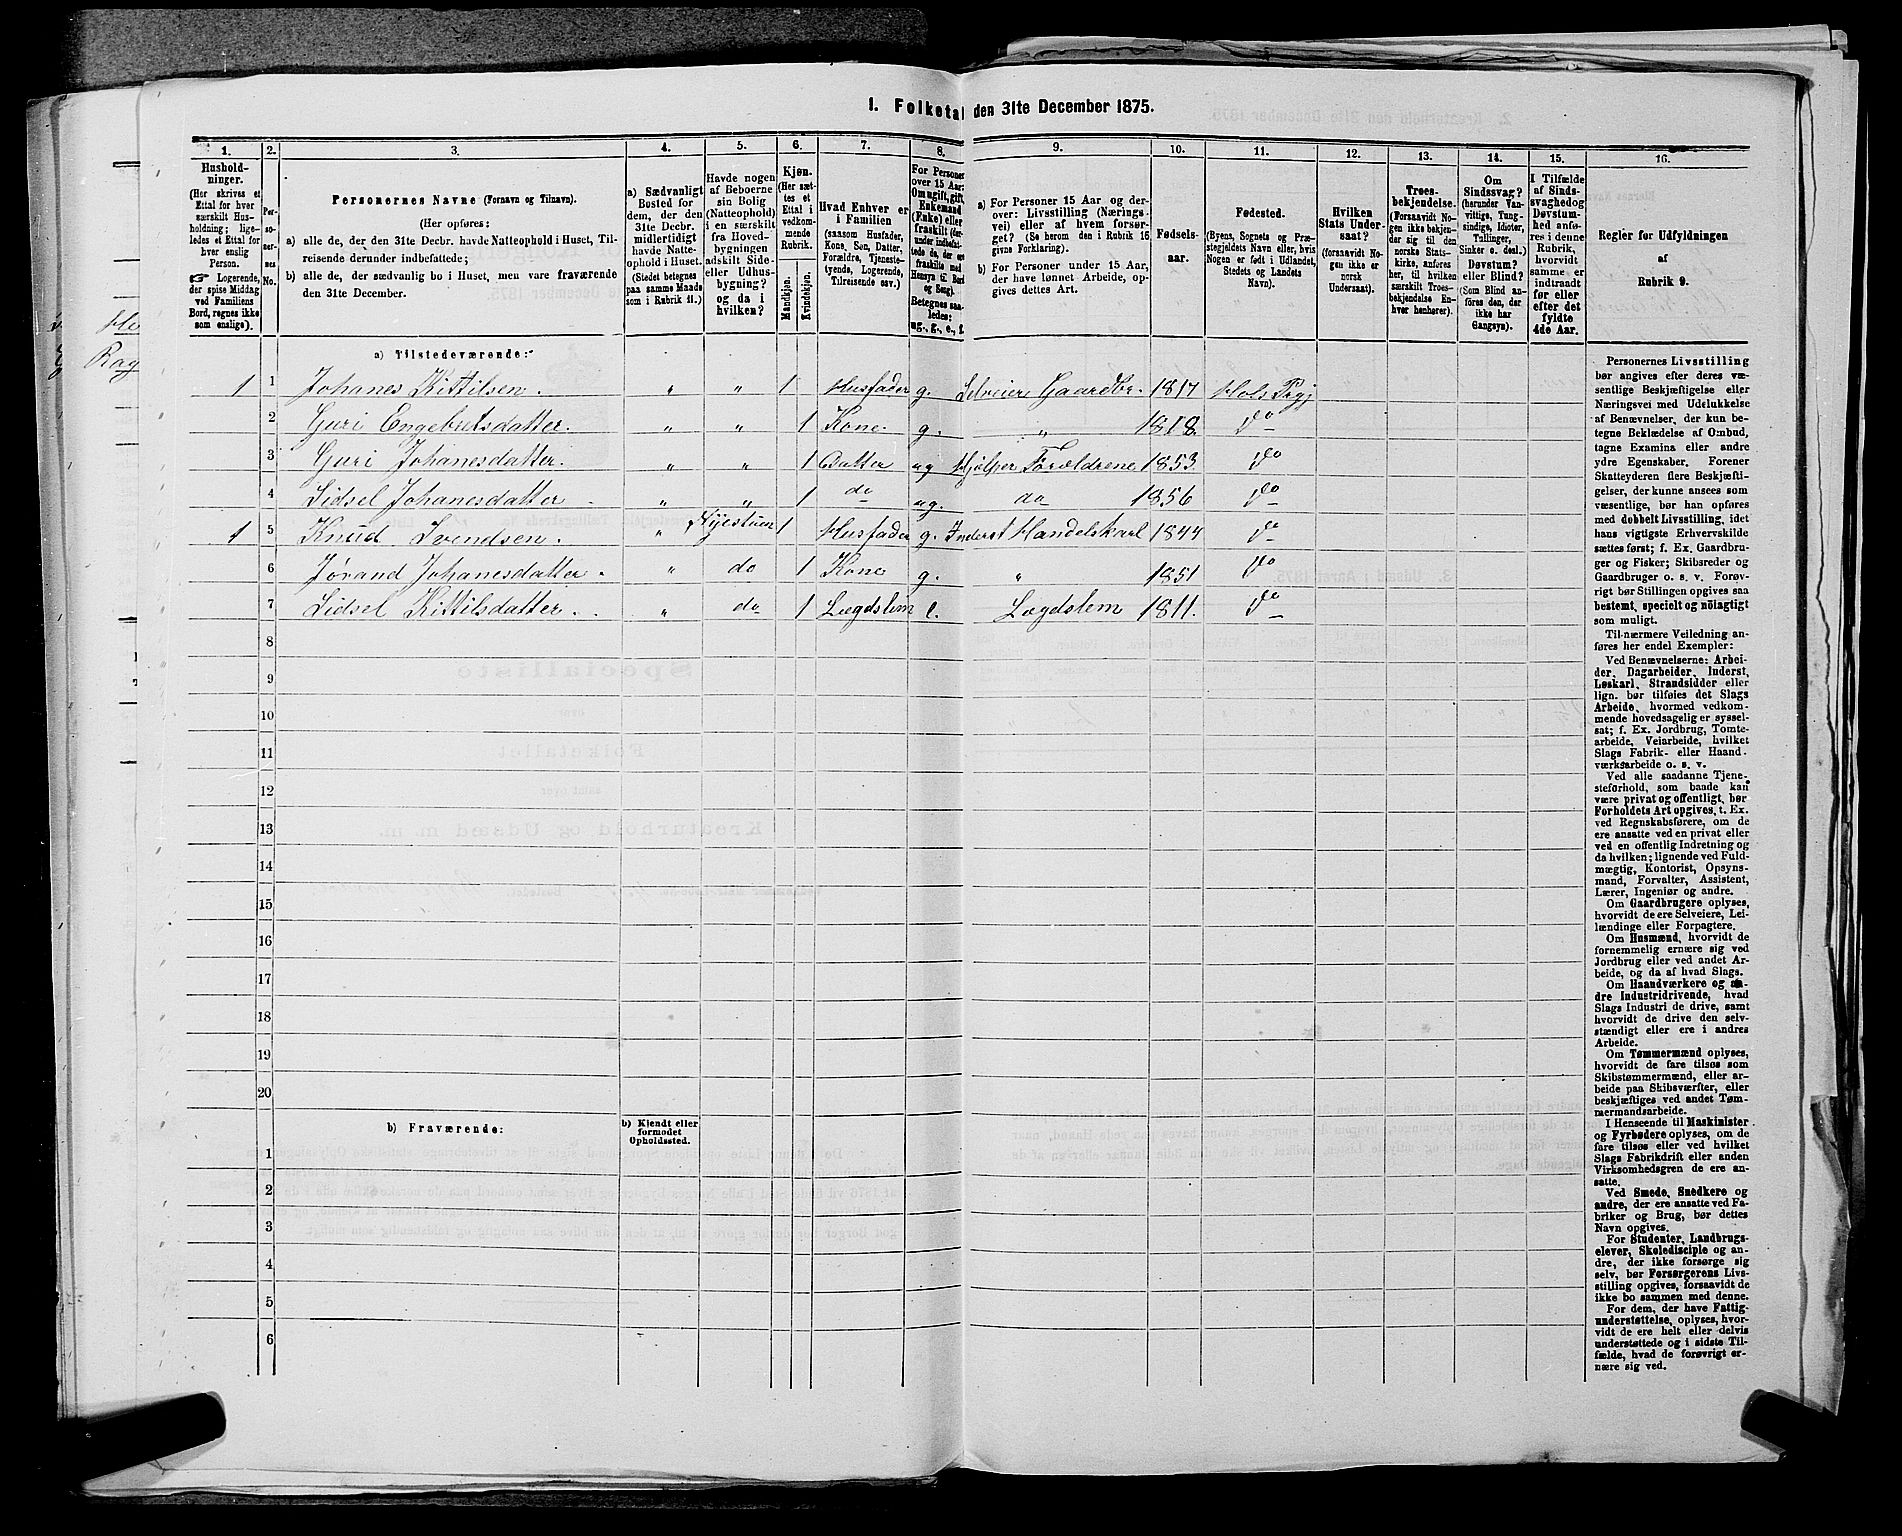 1. Folketal den 31te December 1875.
1. 2. 3. 4. 5. 6. 7. 8. 9. 10. 11. 12. 13. 14. 15. 16.
Hushold-
ninger.
(Her skrives et
Ettal for hver
særskilt Hus-
holdning; lige-
ledes et Ettal for
hver enslig
Person.
☞ Logerende,
der spise Middag
ved Familiens
Bord, regnes ikke
som enslige).
Per-
so-
ner-
nes
No.
Personernes Navne (Fornavn og Tilnavn).
(Her opføres:
a) alle de, der den 31te Decbr. havde Natteophold i Huset, Til-
reisende derunder indbefattede;
b) alle de, der sædvanlig bo i Huset, men vare fraværende
den 31te December.
a) Sædvanligt
Bosted for
dem, der den
31te Decbr.
midlertidigt
havde Natte-
ophold i Huset.
(Stedet betegnes
paa samme Maade
som i Rubrik 11.)
Havde nogen
af Beboerne
sin Bolig
(Natteophold)
i en særskilt
fra Hoved-
bygningen
adskilt Side-
eller Udhus-
bygning?
og da i
hvilken?
Kjøn.
(Her sæt-
tes et
Ettal i
vedkom-
mende
Rubrik.
Mandkjøn.
Kvindekjøn.
Hvad Enhver er
i Familien
(saasom Husfader,
Kone, Søn, Datter,
Forældre, Tjeneste-
tyende, Logerende,
Tilreisende osv.)
For Personer
over 15 Aar:
Om ugift, gift,
Enkemand
(Enke) eller
fraskilt (der-
under indbefat-
tede de, der ere
fraskilte med
Hensyn til Bord
og Seng).
Betegnes saa-
ledes:
ug., g., e., f.
a) For Personer 15 Aar og der-
over: Livsstilling (Nærings-
vei) eller af hvem forsør-
get? (Se herom den i Rubrik 16
givne Forklaring).
b) For Personer under 15 Aar,
der have lønnet Arbeide, op-
gives dettes Art.
Fødsels-
aar.
Fødested.
(Byens, Sognets og Præ-
stegjeldets Navn eller, hvis
Nogen er født i Udlandet,
Stedets og Landets
Navn).
Hvilken
Stats Under-
saat?
(forsaavidt No-
gen ikke er
norsk
Undersaat).
Troes-
bekjendelse.
(Forsaavidt No-
gen ikke bekjen-
der sig til den
norske Stats-
kirke, anføres
her, til hvilken
særskilt Troes-
bekjendelse En-
hver henhører).
Om
Sindssvag?
(herunder Van-
vittige, Tung-
sindige, Idioter,
Tullinger,
Sinker o. desl.).
Døvstum?
eller Blind?
(Som Blind an-
føres den, der
ikke har
Gangsyn).
I Tilfælde
af Sinds-
svaghed og
Døvstum-
hed anfø-
res i denne
Rubrik,
hvorvidt
samme er
indtraadt
før eller
efter det
fyldte
4de Aar.
Regler for Udfyldningen
af
Rubrik 9.
a) Tilstedeværende:
1 1 Johanes Kittilsen. „ „ 1 Husfader g. Selveier Gaardbr. 1817 Hols Prgj
2 Guri Engebretsdatter. „ „ 1 Kone g. „ 1818. do
3 Guri Johanesdatter. „ „ 1 Datter ug Hjelper Forældrene 1853. do
4 Sidsel Johanesdatter „ „ 1 do ug. do 1856 do
1 5 Knud Svendsen. „ Nyestuen 1 Husfader g. Inderst Handelskarl 1844 do
6 Jørand Johanesdatter. „ do 1 Kone g. „ 1851 do
7 Sidsel Kittilsdatter. „ do 1 Lægdslem e. Lægdslem 1811. do
8
9
10
11
12
13
14
15
16
17
18
19
20
b) Fraværende:
b) Kjendt eller
formodet
Opholdssted.
1
2
3
4
5
6
Personernes Livsstilling
bør angives efter deres væ-
sentlige Beskjæftigelse eller
Næringsvei med Udelukkelse
af Benævnelser, der kun be-
tegne Beklædelse af Ombud,
tagne Examina eller andre
ydre Egenskaber. Forener
Skatteyderen flere Beskjæfti-
gelser, der kunne ansees som
væsentlige, bør han opføres
med dobbelt Livsstilling, idet
hans vigtigste Erhvervskilde
sættes først; f. Ex. Gaardbru-
ger og Fisker; Skibsreder og
Gaardbruger o. s. v. Forøv-
rigt bør Stillingen opgives saa
bestemt, specielt og nöiagtigt
som muligt.
Til nærmere Veiledning an-
føres her endel Exempler:
Ved Benævnelserne: Arbei-
der, Dagarbeider, Inderst,
Løskarl, Strandsidder eller
lign. bør tilføies det Slags
Arbeide, hvormed vedkom-
mende hovedsagelig er syssel-
sat; f. Ex. Jordbrug, Tomte-
arbeide, Veiarbeide, hvilket
Slags Fabrik- eller Haand-
værksarbeide o. s. v.
Ved alle saadanne Tjene-
steforhold, som baade kan
være privat og offentligt, bør
Forholdets Art opgives, t. Ex.
ved Regnskabsførere, om de
ere ansatte ved en privat eller
ved en offentlig Indretning og
da hvilken; lignende ved Fuld-
mægtig, Kontorist, Opsyns-
mand, Forvalter, Assistent,
Lærer, Ingeniør og andre.
Om Gaardbrugere oplyses,
hvorvidt de ere Selveiere, Lei-
lændinge eller Forpagtere.
Om Husmænd, hvorvidt de
fornemmelig ernære sig ved
Jordbrug eller ved andet Ar-
beide, og da af hvad Slags.
Om Haandværkere og an-
dre Industridrivende, hvad
Slags Industri de drive, samt
hvorvidt de drive den selv-
stændigt eller ere i andres
Arbeide.
Om Tømmermænd oplyses,
hvorvidt de fare tilsøs som
Skibstømmermænd, eller ar-
beide paa Skibsværfter, eller
beskjæftiges ved andet Tøm-
mermandsarbeide.
I Henseende til Maskinister
og Fyrbødere oplyses, om de
fare tilsøs eller ved hvilket
Slags Fabrikdrift eller anden
Virksomhedsgren de ere an-
satte.
Ved Smede, Snedkere og
andre, der ere ansatte ved Fa-
briker og Brug, bør dettes
Navn opgives.
For Studenter, Landbrugs-
elever, Skoledisciple og an-
dre, der ikke forsørge sig
selv, bør Forsørgerens Livs-
stilling opgives, forsaavidt de
ikke bo sammen med denne.
For dem, der have Fattig-
understøttelse, oplyses, hvor-
vidt de ere helt eller delvis
understøttede og i sidste Til-
fælde, hvad de forøvrigt er-
nære sig ved.